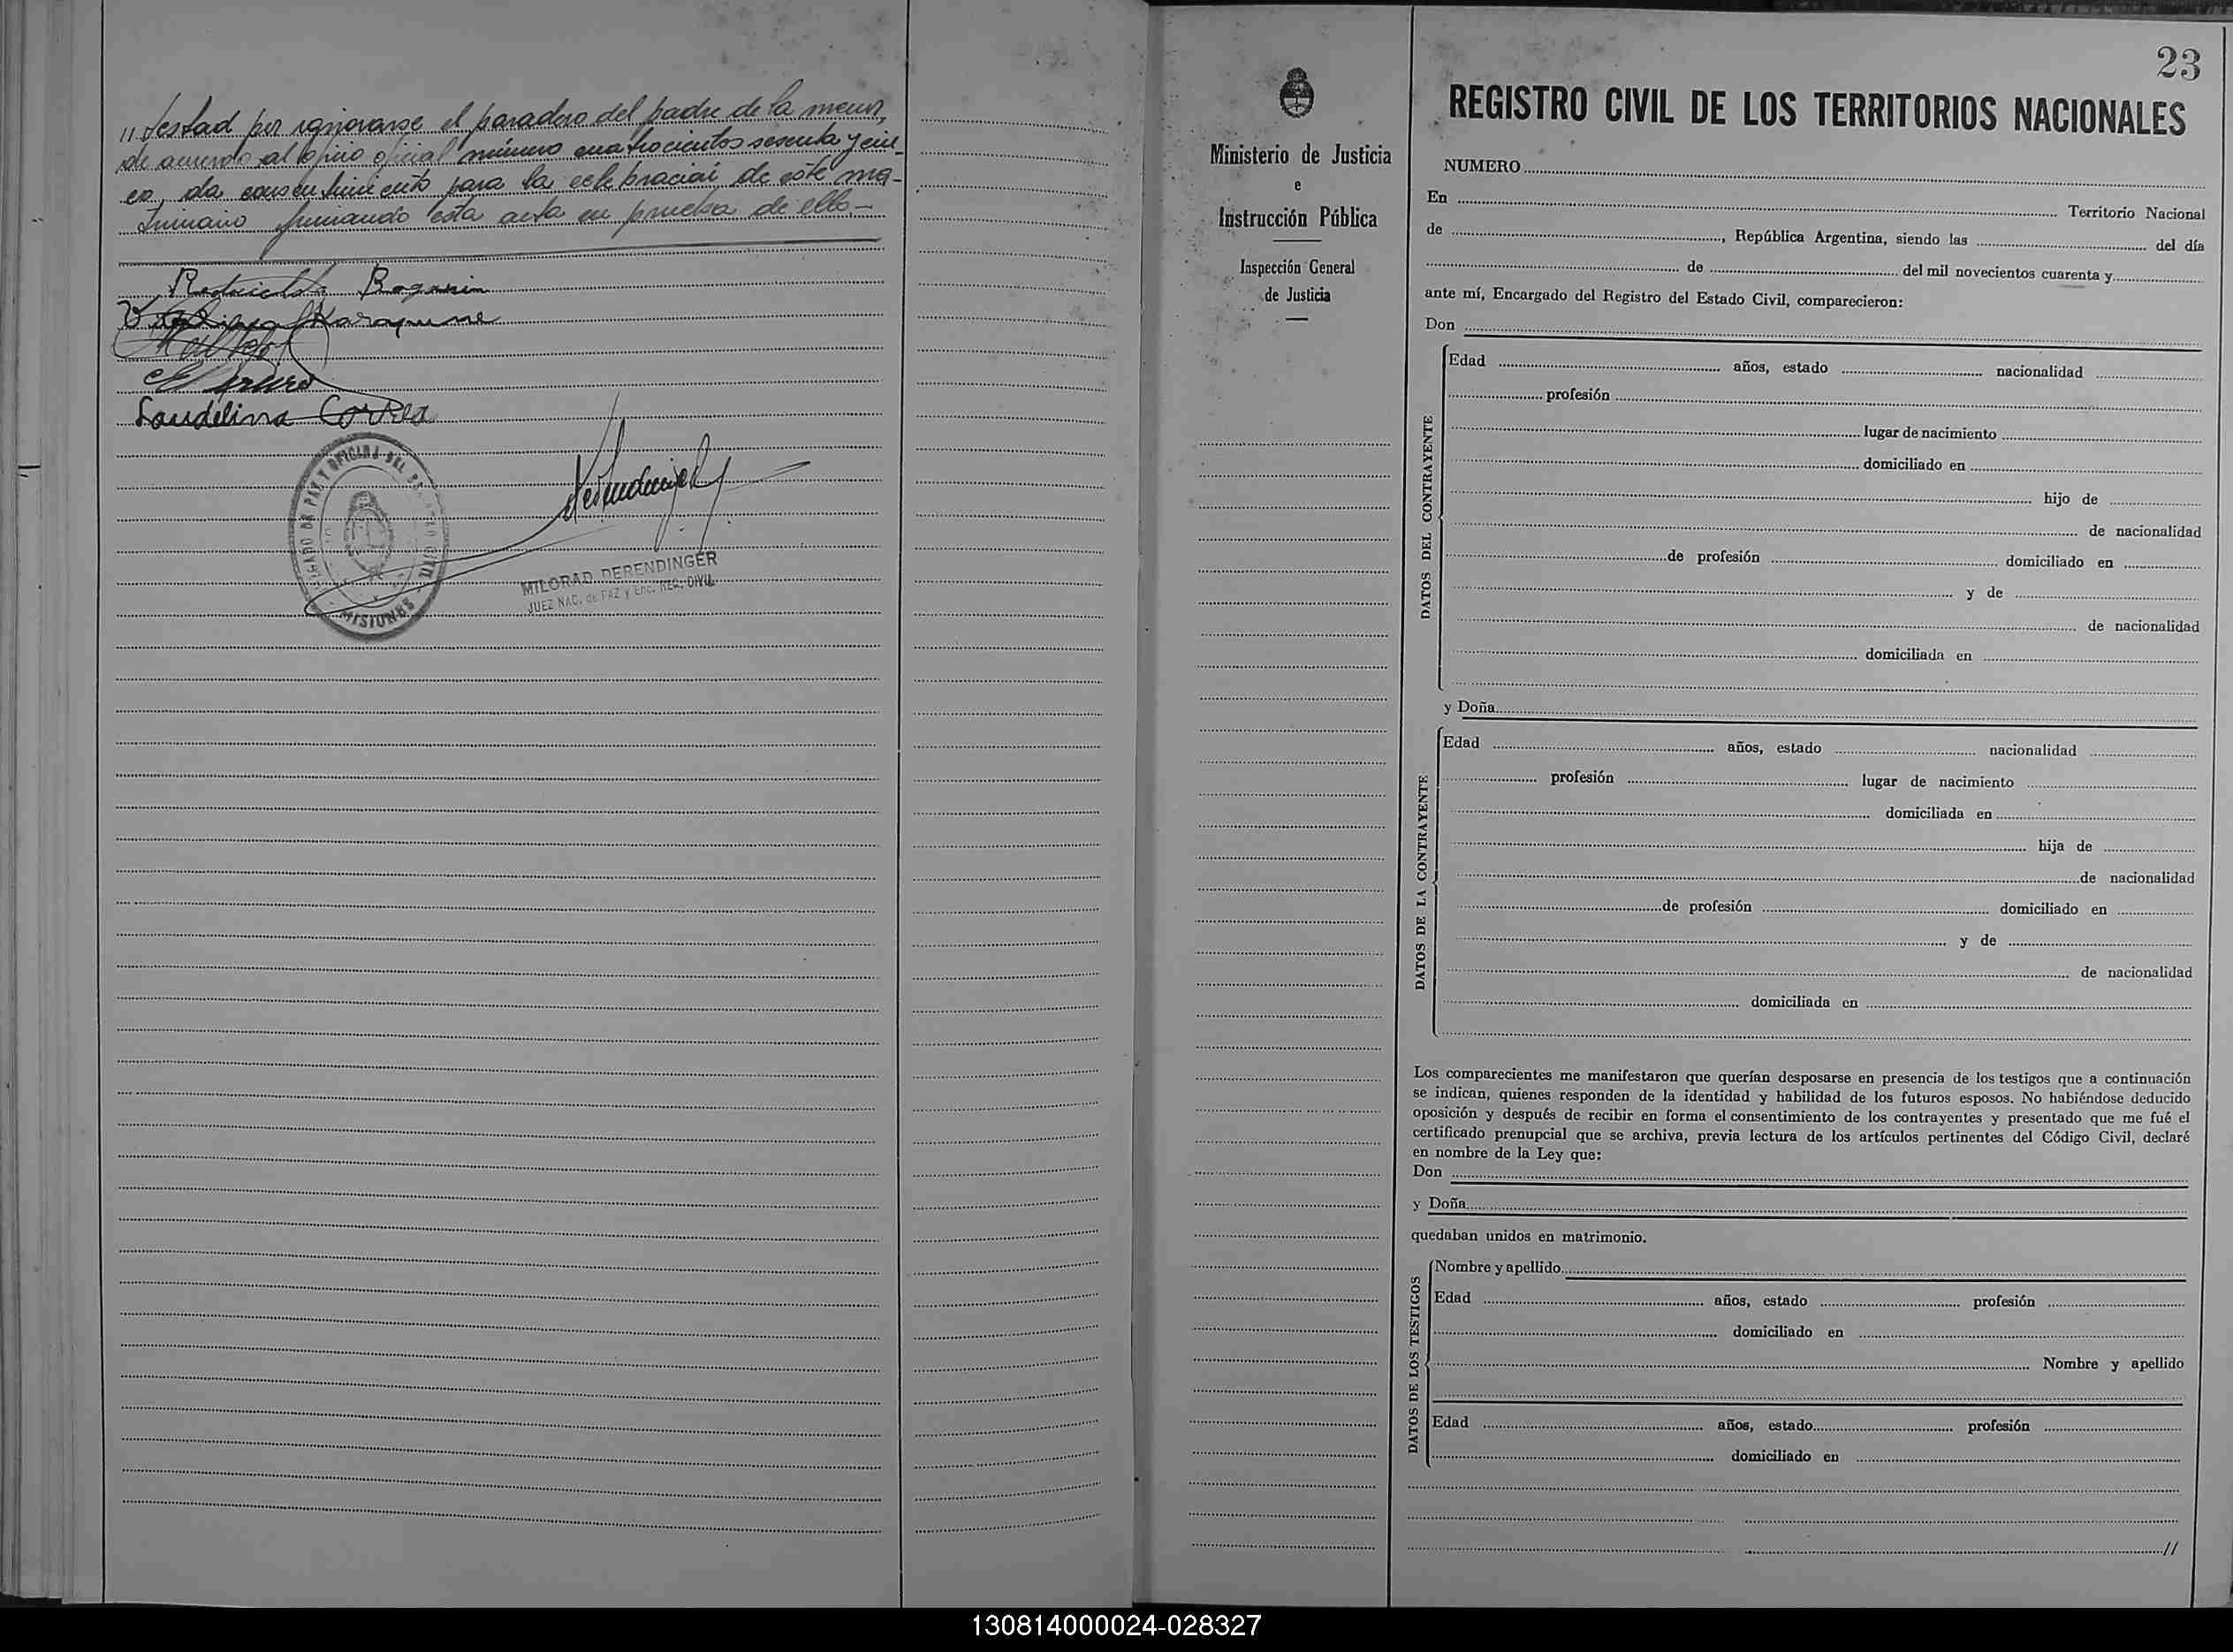 // testad por ignorarse el paradero del padre de la menor,
de acuerdo al oficio oficial número cuatrocientos sesenta y cin-
co, da consentimiento para la celebración de este ma-
trimonio firmando esta acta en prueba de ello.-
Bogarin
Karapune
Laudelina Correa
JUZGADO DE PAZ Y OFICINA DEL REGISTRO CIVIL
MISIONES
MILORAD DERENDINGER
JUEZ NAC. de PAZ y Enc. REG. CIVIL
Ministerio de Justicia
e
Instrucción Pública
Inspección General
de Justicia
23
REGISTRO CIVIL DE LOS TERRITORIOS NACIONALES
NUMERO
En Territorio Nacional
de , República Argentina, siendo las del día
de del mil novecientos cuarenta y
ante mí, Encargado del Registro del Estado Civil, comparecieron:
Don
DATOS DEL CONTRAYENTE
Edad años, estado nacionalidad
profesión
lugar de nacimiento
domiciliado en
hijo de
de nacionalidad
de profesión domiciliado en
y de
de nacionalidad
domiciliada en
y Doña
DATOS DE LA CONTRAYENTE
Edad años, estado nacionalidad
profesión lugar de nacimiento
domiciliada en
hija de
de nacionalidad
de profesión domiciliado en
y de
de nacionalidad
domiciliada en
Los comparecientes me manifestaron que querían desposarse en presencia de los testigos que a continuación
se indican, quienes responden de la identidad y habilidad de los futuros esposos. No habiéndose deducido
oposición y después de recibir en forma el consentimiento de los contrayentes y presentado que me fué el
certificado prenupcial que se archiva, previa lectura de los artículos pertinentes del Código Civil, declaré
en nombre de la Ley que:
Don
y Doña
quedaban unidos en matrimonio.
DATOS DE LOS TESTIGOS
Nombre y apellido
Edad años, estado profesión
domiciliado en
Nombre y apellido
Edad años, estado profesión
domiciliado en
//
130814000024-028327